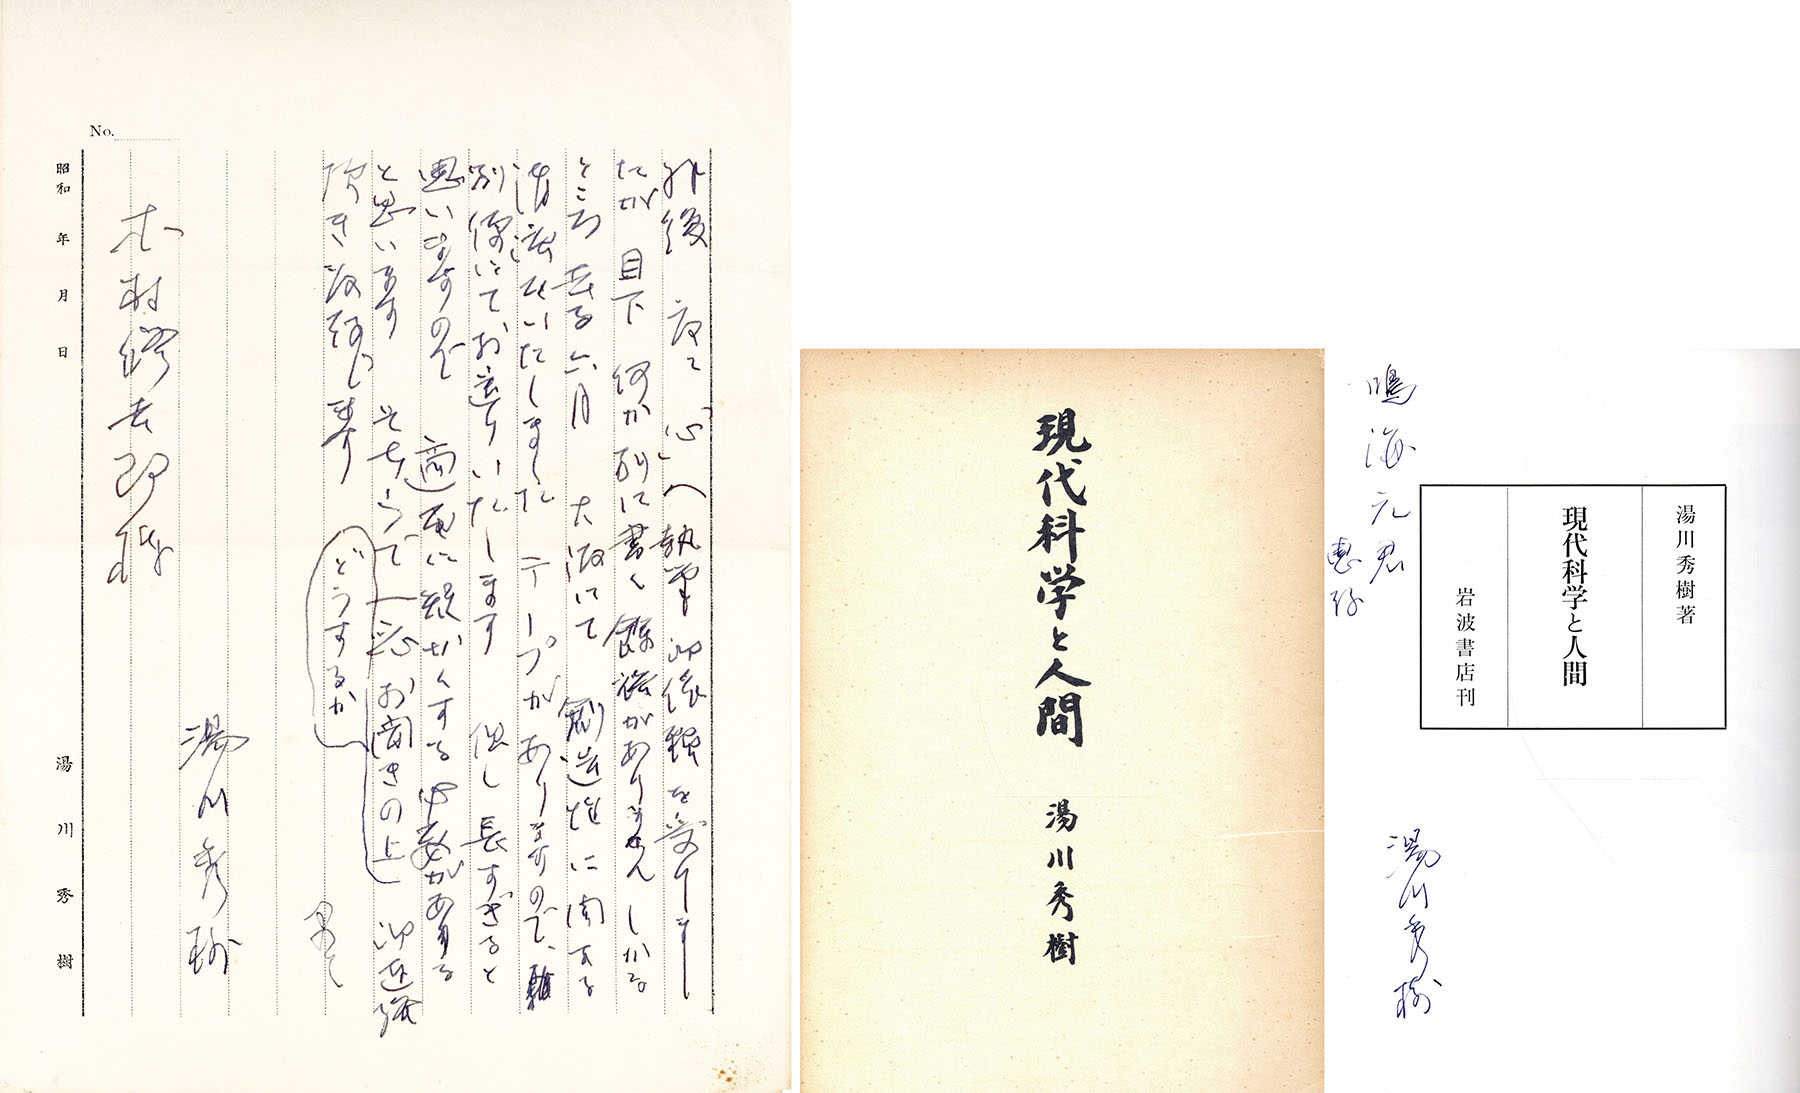 No.
拝復 さて「心」へ執筆御依頼を受けまし
たが 目下 何か別に書く餘裕がありません しかる
ところ 去る六月 大阪にて 創造性に関する
講演をいたしました テープがありますので、
別便にてお送りいたします 但し 長すぎると
思いますので 適宜に短かくする必要がある
と思います そちらで一応お聞きの上
どうするか
御連絡
頂き度願い上げます
木村 様
湯川秀樹
昭和 年 月 日
湯川秀樹
現代科学と人間
湯川秀樹
鳴海元君
恵存
湯川秀樹著
現代科学と人間
岩波書店刊
湯川秀樹